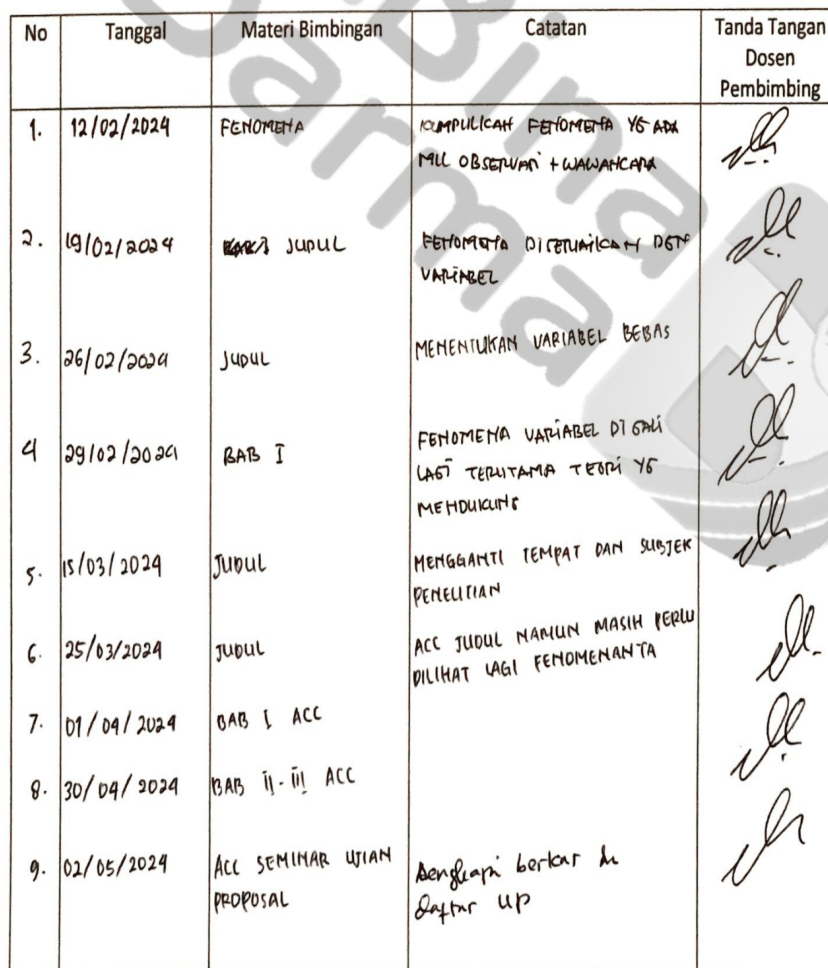 Bina
Darma
No Tanggal Materi Bimbingan Catatan Tanda Tangan
Dosen
Pembimbing
1. 12/02/2024 FENOMENA KUMPULKAN FENOMENA YG ADA
MLL OBSERVASI + WAWANCARA
2. 19/02/2024 JUDUL FENOMENA DISESUAIKAN DGN
VARIABEL
3. 26/02/2024 JUDUL MENENTUKAN VARIABEL BEBAS
4 29/02/2024 BAB I FENOMENA VARIABEL DI GALI
LAGI TERUTAMA TEORI YG
MENDUKUNG
5. 15/03/2024 JUDUL MENGGANTI TEMPAT DAN SUBJEK
PENELITIAN
6. 25/03/2024 JUDUL ACC JUDUL NAMUN MASIH PERLU
DILIHAT LAGI FENOMENANYA
7. 01/04/2024 BAB I ACC
8. 30/04/2024 BAB II-III ACC
9. 02/05/2024 ACC SEMINAR UJIAN Lengkapi berkas &
PROPOSAL daftar UP